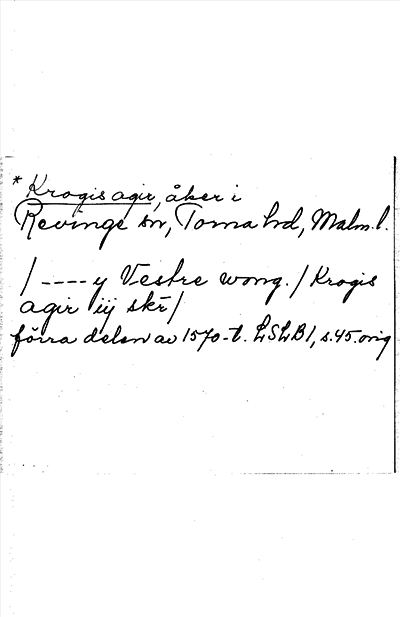 * Krogis agir, åker i
Revinge sn, Torna hd, Malm. l.
/ ---- y Vestre wong. / Krogis
agir iij skr /
förra delen av 1570-t. LSLB1, s.45. orig